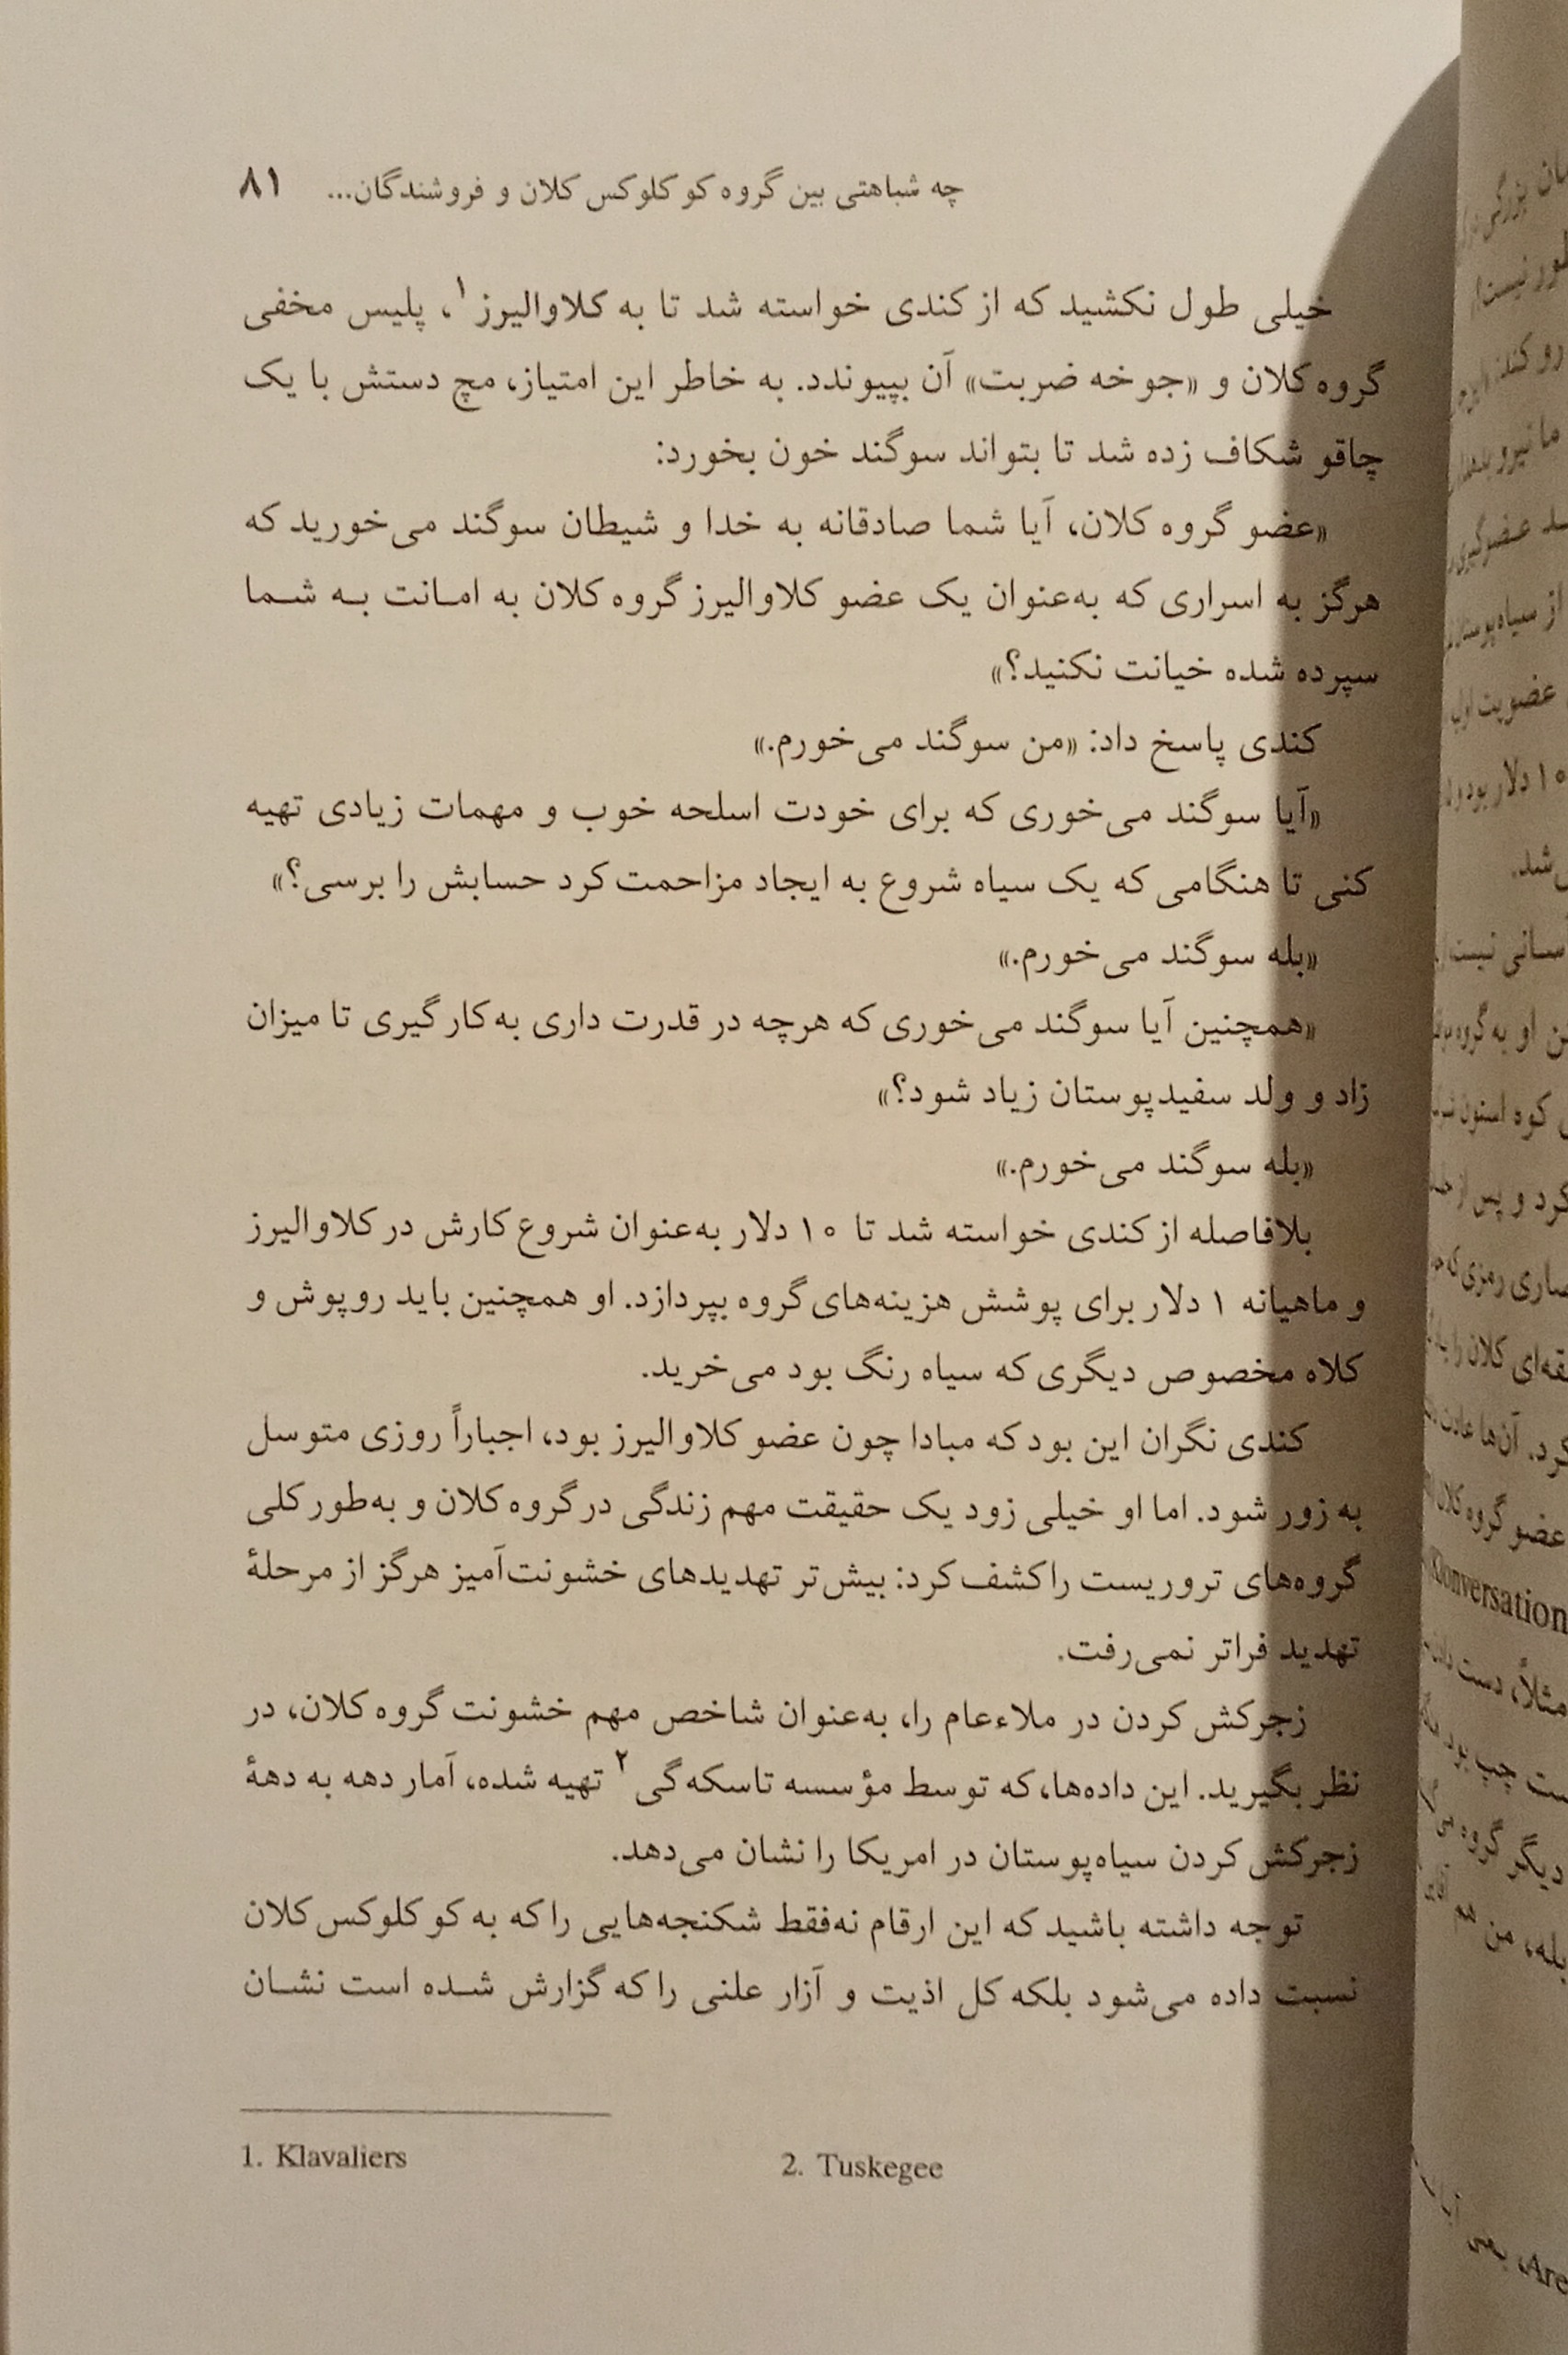 چه شباهتی بین گروه کوکلوکس کلان و فروشندگان... ۸۱
خیلی طول نکشید که از کندی خواسته شد تا به کلاوالیرز۱، پلیس مخفی
گروه کلان و «جوخه ضربت» آن بپیوندد. به خاطر این امتیاز، مچ دستش با یک
چاقو شکاف زده شد تا بتواند سوگند خون بخورد:
«عضو گروه کلان، آیا شما صادقانه به خدا و شیطان سوگند می‌خورید که
هرگز به اسراری که به‌عنوان یک عضو کلاوالیرز گروه کلان به امانت به شما
سپرده شده خیانت نکنید؟»
کندی پاسخ داد: «من سوگند می‌خورم.»
«آیا سوگند می‌خوری که برای خودت اسلحه خوب و مهمات زیادی تهیه
کنی تا هنگامی که یک سیاه شروع به ایجاد مزاحمت کرد حسابش را برسی؟»
«بله سوگند می‌خورم.»
«همچنین آیا سوگند می‌خوری که هرچه در قدرت داری به‌کار گیری تا میزان
زاد و ولد سفیدپوستان زیاد شود؟»
«بله سوگند می‌خورم.»
بلافاصله از کندی خواسته شد تا ۱۰ دلار به‌عنوان شروع کارش در کلاوالیرز
و ماهیانه ۱ دلار برای پوشش هزینه‌های گروه بپردازد. او همچنین باید روپوش و
کلاه مخصوص دیگری که سیاه رنگ بود می‌خرید.
کندی نگران این بود که مبادا چون عضو کلاوالیرز بود، اجباراً روزی متوسل
به زور شود. اما او خیلی زود یک حقیقت مهم زندگی در گروه کلان و به‌طور کلی
گروه‌های تروریست را کشف کرد: بیش‌تر تهدیدهای خشونت‌آمیز هرگز از مرحلهٔ
تهدید فراتر نمی‌رفت.
زجرکش کردن در ملاءعام را، به‌عنوان شاخص مهم خشونت گروه کلان، در
نظر بگیرید. این داده‌ها، که توسط مؤسسه تاسکه‌گی۲ تهیه شده، آمار دهه به دههٔ
زجرکش کردن سیاه‌پوستان در امریکا را نشان می‌دهد.
توجه داشته باشید که این ارقام نه‌فقط شکنجه‌هایی را که به کوکلوکس کلان
نسبت داده می‌شود بلکه کل اذیت و آزار علنی را که گزارش شده است نشان
1. Klavaliers 2. Tuskegee